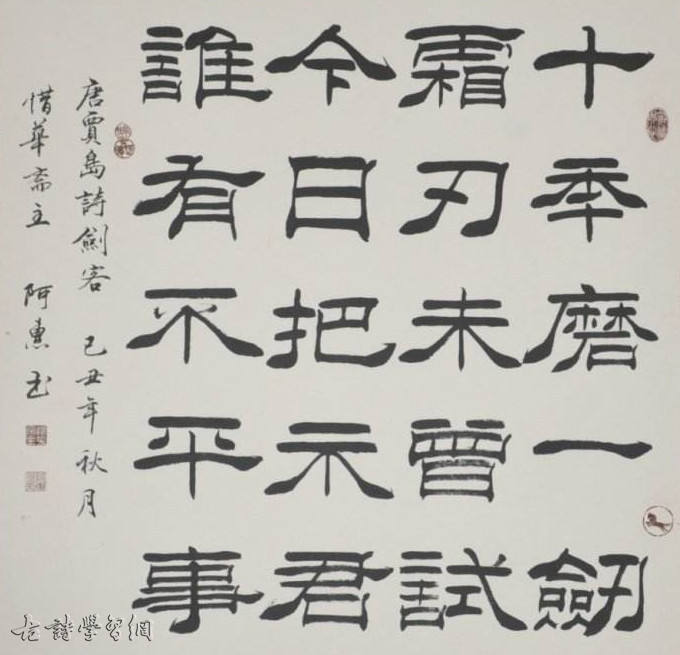 十年磨一劍
霜刃未曾試
今日把示君
誰有不平事
唐賈島詩劍客 己丑年秋月
惜華齋主 阿惠书
古詩學習網